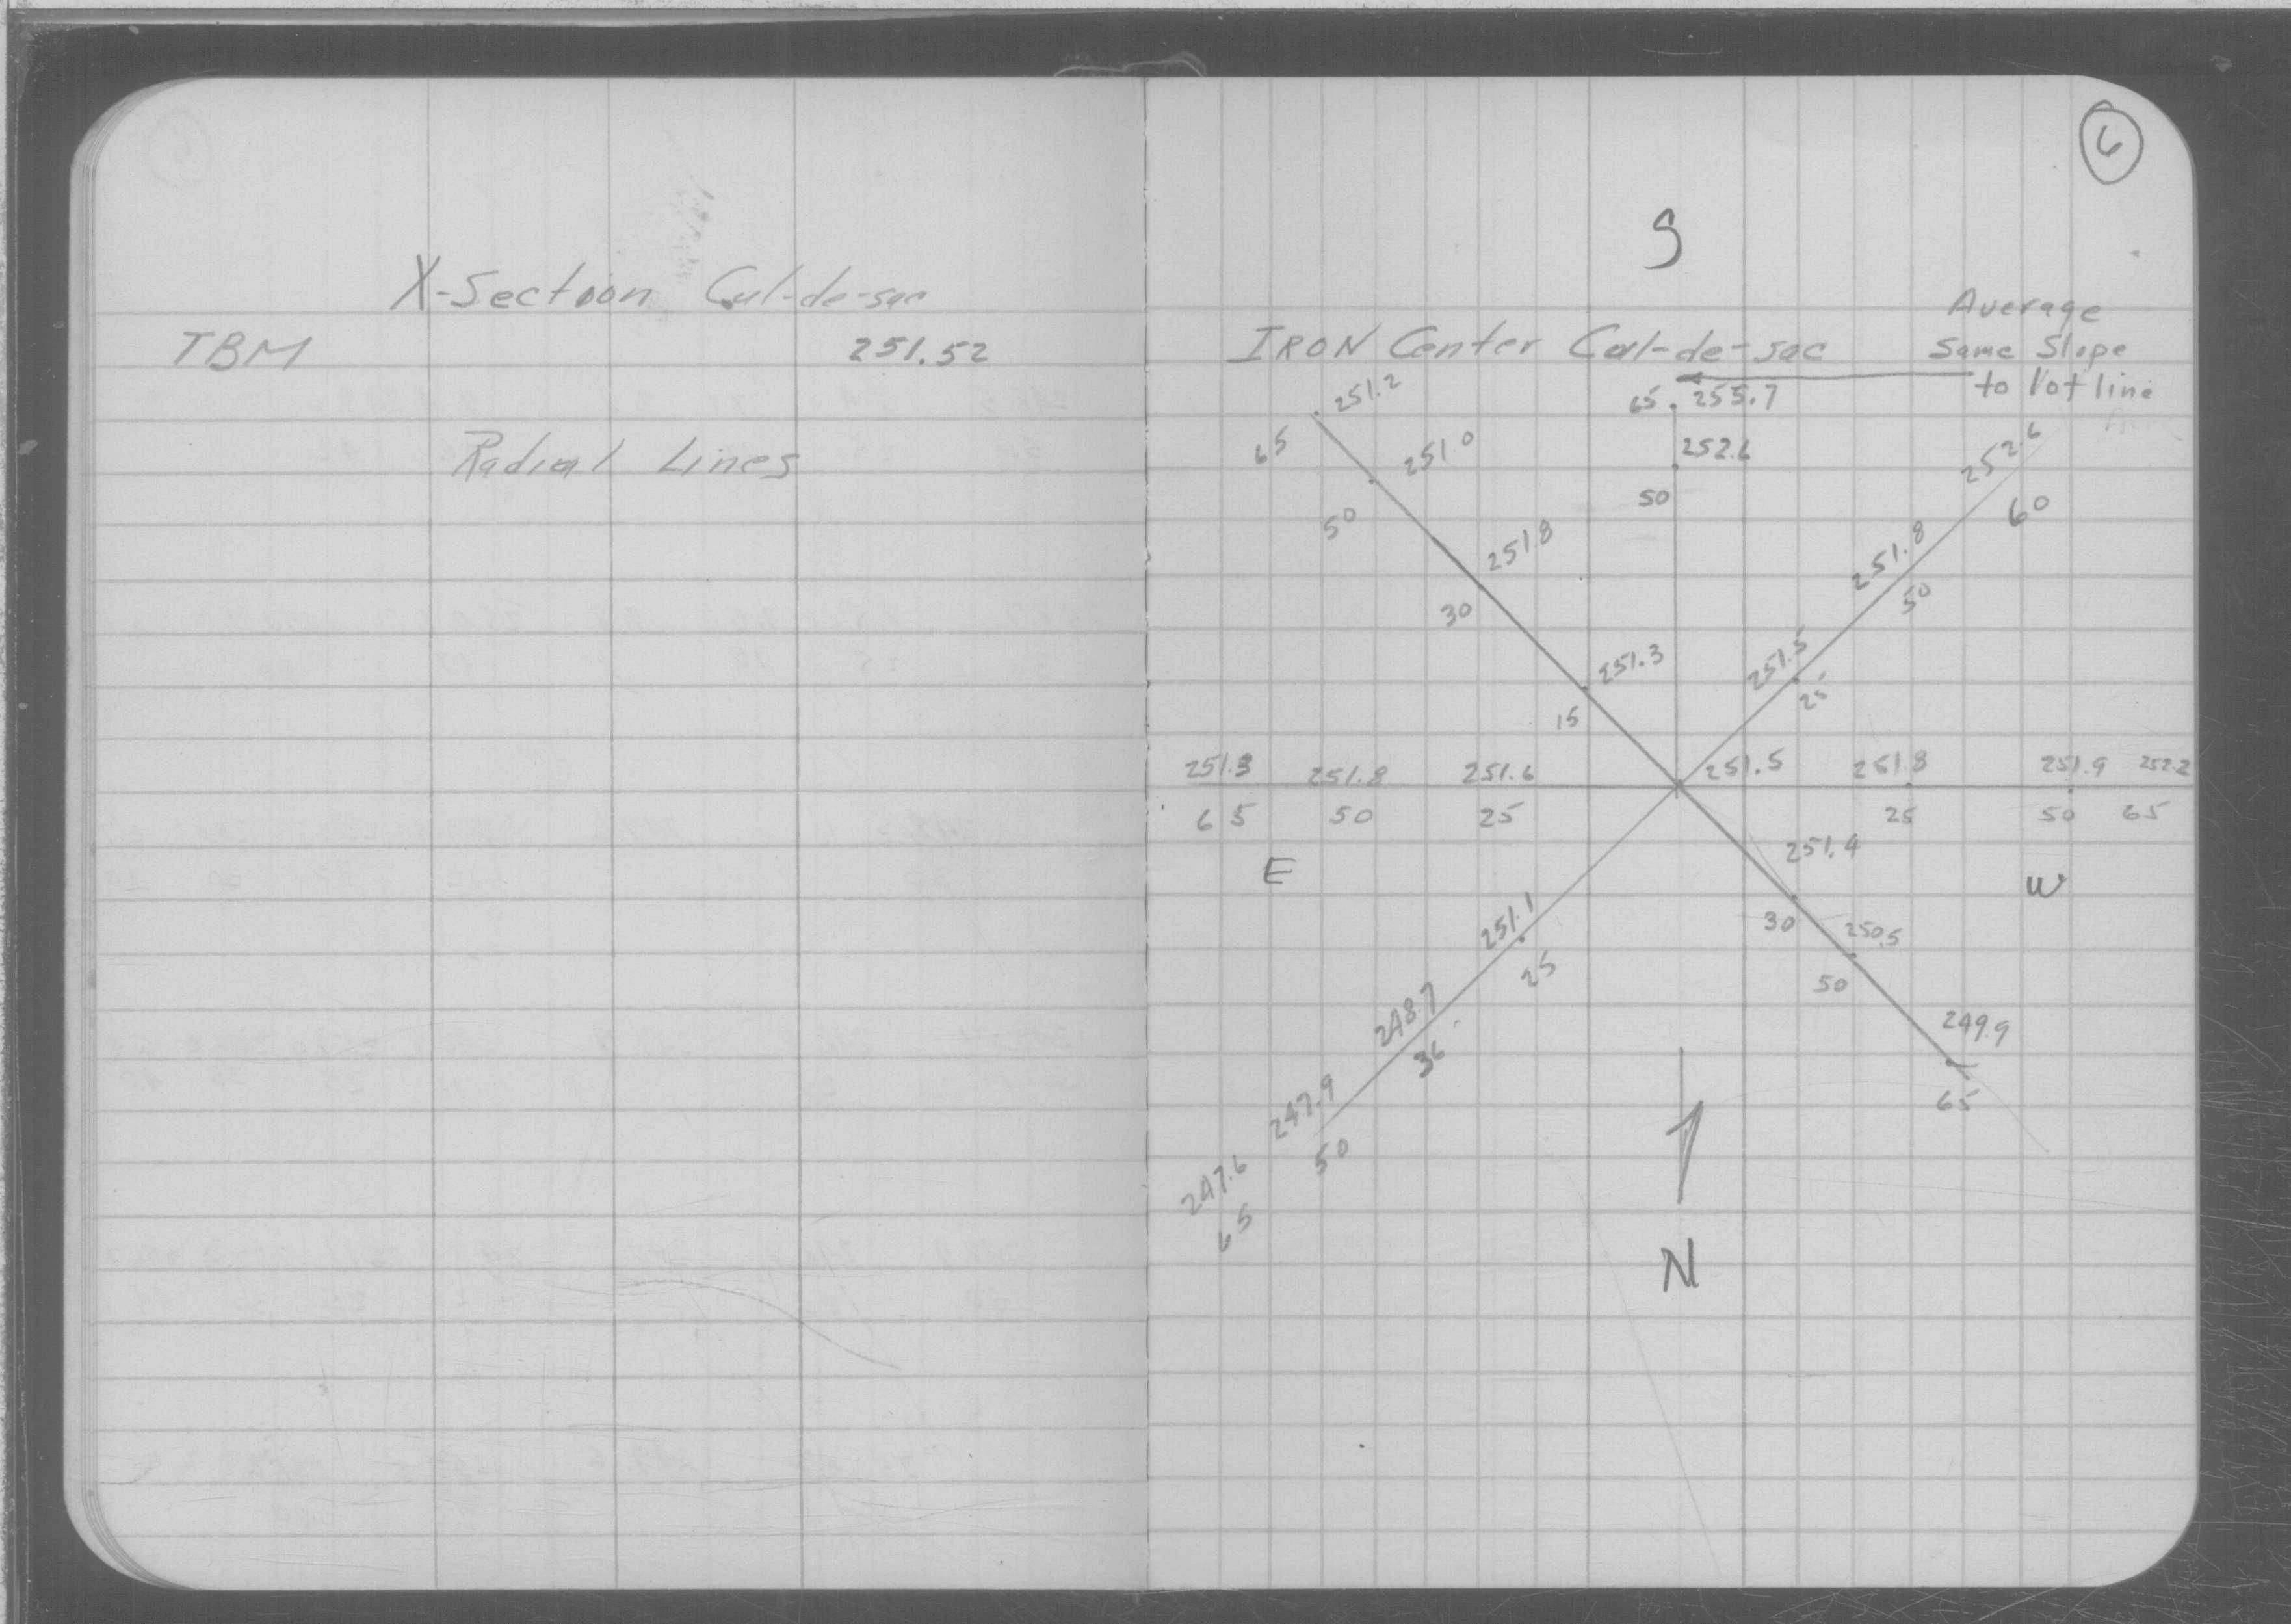 X-Section Cul-de-sac
TBM 251.52
Radial Lines
6
S
IRON Center Cul-de-sac
Average
Same Slope
to lot line
251.2
65
65 255.7
251.0
50
252.6
50
252.6
60
251.8
30
251.8
50
251.3
15
251.5
25
251.3 251.8 251.6 251.5 251.8 251.9 252.2
65 50 25 25 50 65
E
W
251.4
30
250.5
50
249.9
65
251.1
25
248.7
36
247.9
50
247.6
65
N